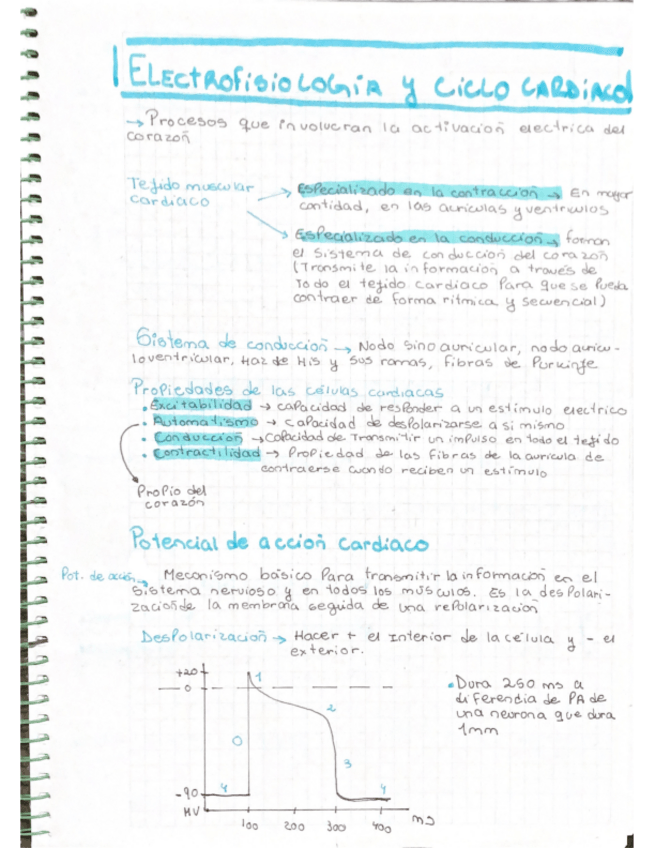 ELECTROFISIOLOGÍA Y CICLO CARDIACO
→ Procesos que involucran la activación electrica del
corazón
Tejido muscular
cardiaco
Especializado en la contracción → En mayor
contidad, en las auriculas y ventriculos
Especializado en la conducción → forman
el sistema de conducción del corazón
(Transmite la informacion a través de
Todo el tejido cardiaco Para que se Pueda
contraer de forma ritmica y secuencial)
Sistema de conducción → Nodo sino auricular, nodo auricu-
loventricular, Haz de His y sus ramas, fibras de Purkinfe
Propiedades de las células cardiacas
• Excitabilidad → capacidad de responder a un estímulo electrico
• Automatismo → capacidad de despolarizarse a si mismo
• Conducción → Capacidad de Transmitir un impulso en todo el tejido
• Contractilidad → Propiedad de las fibras de la auricula de
contraerse cuando reciben un estímulo
Propio del
corazón
Potencial de acción cardiaco
Pot. de acción → Mecanismo básico Para transmitir la información en el
sistema nervioso y en todos los músculos. Es la desPolari-
zación de la membrana seguida de una rePolarización
DesPolarización → Hacer + el Interior de la célula y - el
exterior.
+20
0
-90
MV
0
1
2
3
4
4
100 200 300 400 ms
• Dura 250 ms a
diferencia de PA de
una neurona que dura
1mm